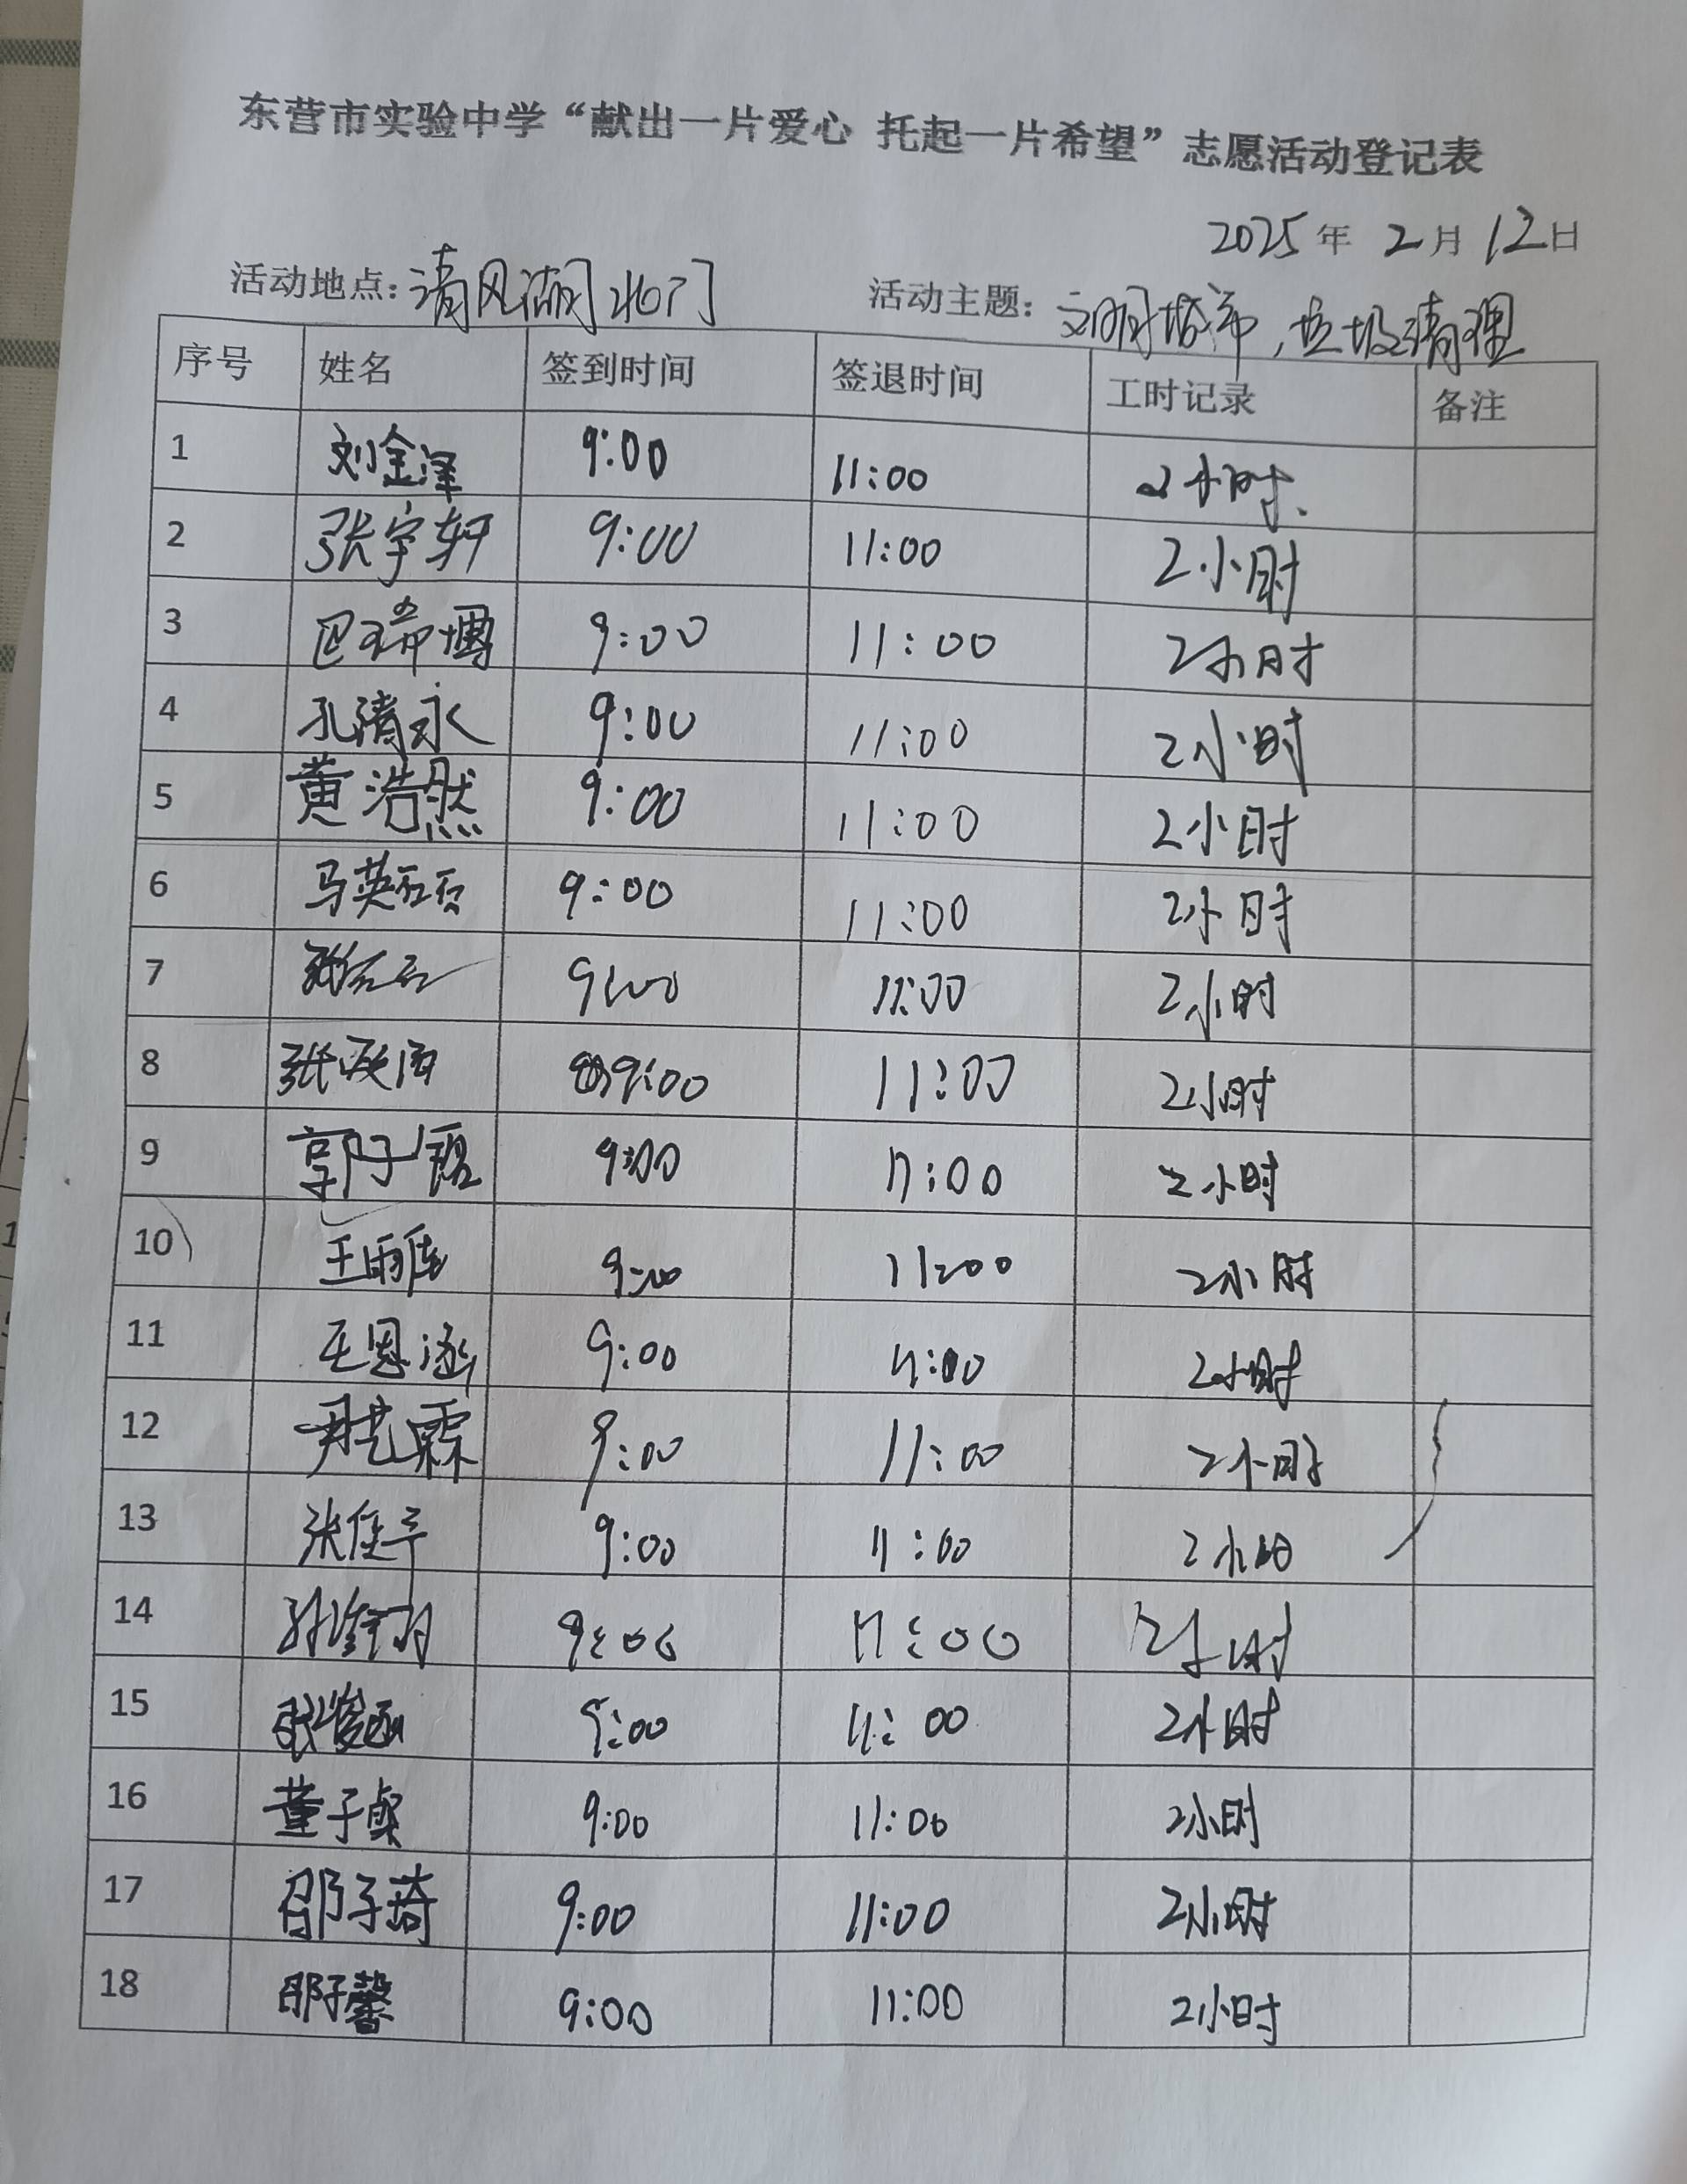 东营市实验中学“献出一片爱心 托起一片希望”志愿活动登记表
2025年 2月 12日
活动地点：清风湖北门 活动主题：文明城市，垃圾清理
序号 姓名 签到时间 签退时间 工时记录 备注
1 刘金泽 9:00 11:00 2小时.
2 张宇轩 9:00 11:00 2小时
3 巴瑞博 9:00 11:00 2小时
4 孔清永 9:00 11:00 2小时
5 黄浩然 9:00 11:00 2小时
6 马英 9:00 11:00 2小时
7 9:00 11:00 2小时
8 张 9:00 11:00 2小时
9 郭子锯 9:00 11:00 2小时
10 王雨 9:00 11:00 2小时
11 王恩涵 9:00 11:00 2小时
12 尹艺霖 9:00 11:00 2小时
13 张佳 9:00 11:00 2小时
14 9:00 11:00 2小时
15 张俊函 9:00 11:00 2小时
16 董子 9:00 11:00 2小时
17 邵子琦 9:00 11:00 2小时
18 邵子馨 9:00 11:00 2小时